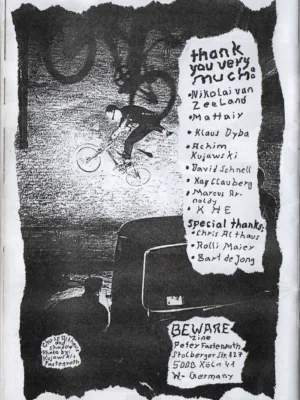 thank
you very
much:
• Nikolai van
Zeeland
• Mattaiy
• Klaus Dyba
• Achim
Kujawski
• David Schnell
• Kay Clauberg
• Marcus Ar-
noldy
• K H E
special thanks:
• Chris Althaus
• Rolli Maier
• Bart de Jong
BEWARE
zine
Peter Fastenrath
Stolberger Str. 127
5000 Köln 41
W-Germany
and
shadow
Photo by:
Kujawski &
Fastenrath